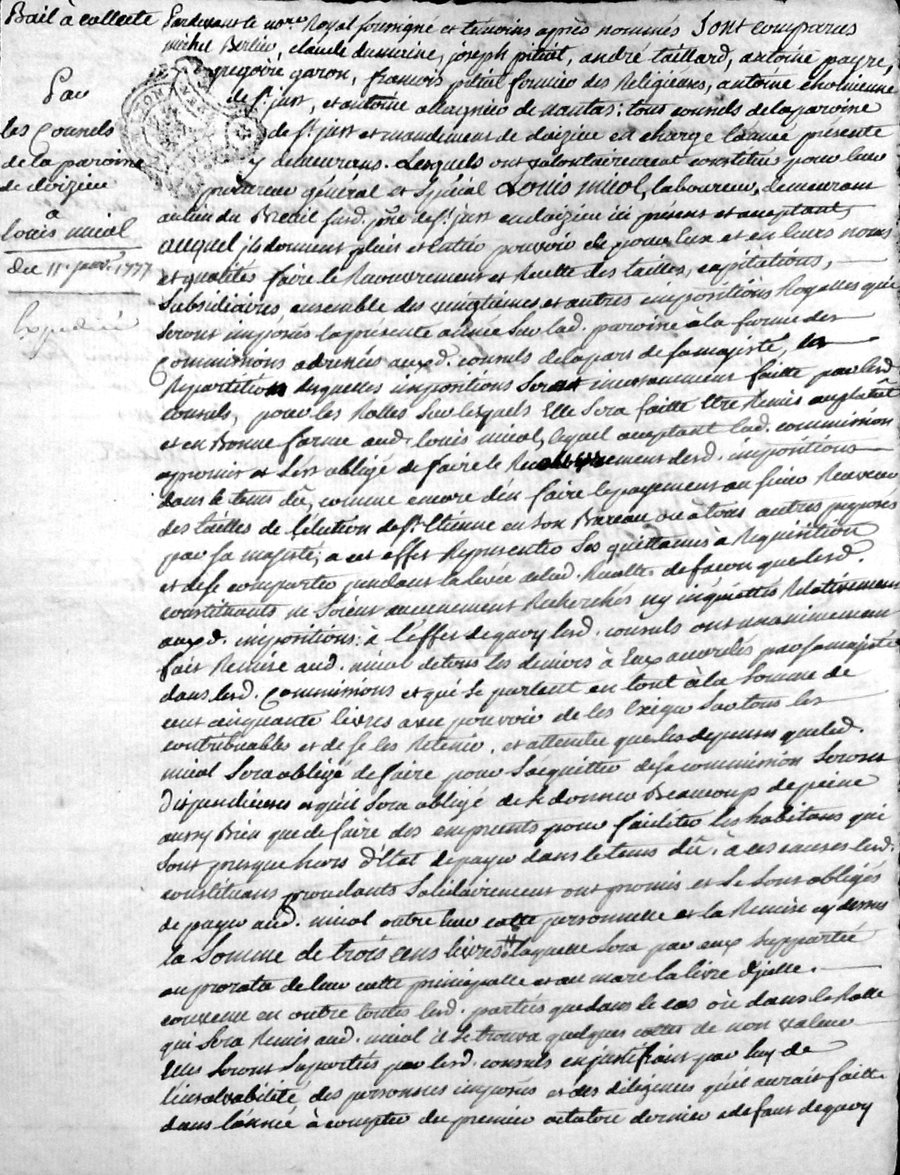 Bail à collecte
Par
les Consuls
de la paroisse
de doizieu
à
louis micol
du 11e. janv. 1777
Expedié
Pardevant le nore. Royal soussigné et temoins après nommés Sont comparus
michel Berlier, claude dumaine, joseph pitiot, andré taillard, antoine payre,
gregoire garon, francois pitiot fermier des Religieuses, antoine
de st. just, et antoine de nantas: tous consuls de la paroisse
de st. just et mandement de doizieu en charge l'année présente
y demeurans. Lesquels ont volontairement constitué pour leur
procureur général et spécial Louis micol, laboureur, demeurant
au lieu du Breuil susd. psse. de st. just en doizieu ici présent et acceptant,
auquel ils donnent plein et entier pouvoir de pour eux et en leurs noms
et qualités faire le Recouvrement et Recette des tailles, capitations,
Subsidiaires, ensemble des vingtiemes et autres impositions Royalles qui
seront imposés la présente année sur lad. paroisse à la forme des
Commissions adressées auxd. consuls de la part de sa majesté, la
Repartition desquelles impositions sera incessamment faitte par lesd.
consuls, pour les Rolles sur lesquels Elle sera faitte Etre Remis au plutôt
et en Bonne forme aud. louis micol, lequel acceptant lad. commission
a promis et s'est obligé de faire le desd. impositions
dans le tems dû, comme encore d'en faire le payement au sieur Receveur
des tailles de l'élection de st. Etienne en son Bureau ou à tous autres préposés
par sa majesté; a cet effet Representer ses quittances à Requisition
et de se comporter pendant la levée desd. Rolles de facon que lesd.
constituants ne soient aucunement Recherchés ny inquiettés Relativement
auxd. impositions: à l'effet de quoy lesd. consuls ont unanimement
fait Remise aud. micol de tous les deniers à Eux accordés par sa majesté
dans lesd. Commissions et qui se portent en tout à la somme de
cent cinquante livres avec pouvoir de les Exiger sur tous les
contribuables et de se les Retenir. et attendu que les depenses que led.
micol sera obligé de faire pour s'acquitter de sa commission seront
dispendieuses et qu'il sera obligé de se donner Beaucoup de peine
aussy Bien que de faire des emprunts pour faciliter les habitans qui
sont presque hors d'Etat de payer dans le tems dû, à ces causes lesd.
constituans procedants solidairement ont promis et se sont obligés
de payer aud. micol outre leur cotte personnelle et la Remise cy dessus
la somme de trois cens livres laquelle sera par eux supportée
au prorata de leur cotte principalle et au marc la livre d'icelle.
convenu en outre toutes lesd. parties que dans le cas où dans le Rolle
qui sera Remis aud. micol il se trouva quelques cottes de non valeur
Elles seront suportées par lesd. consuls en justifiant par luy de
l'insolvabilité des personnes imposées et des diligences qu'il aurait faitte
dans l'année à compter du premier octobre dernier a defaut de quoy